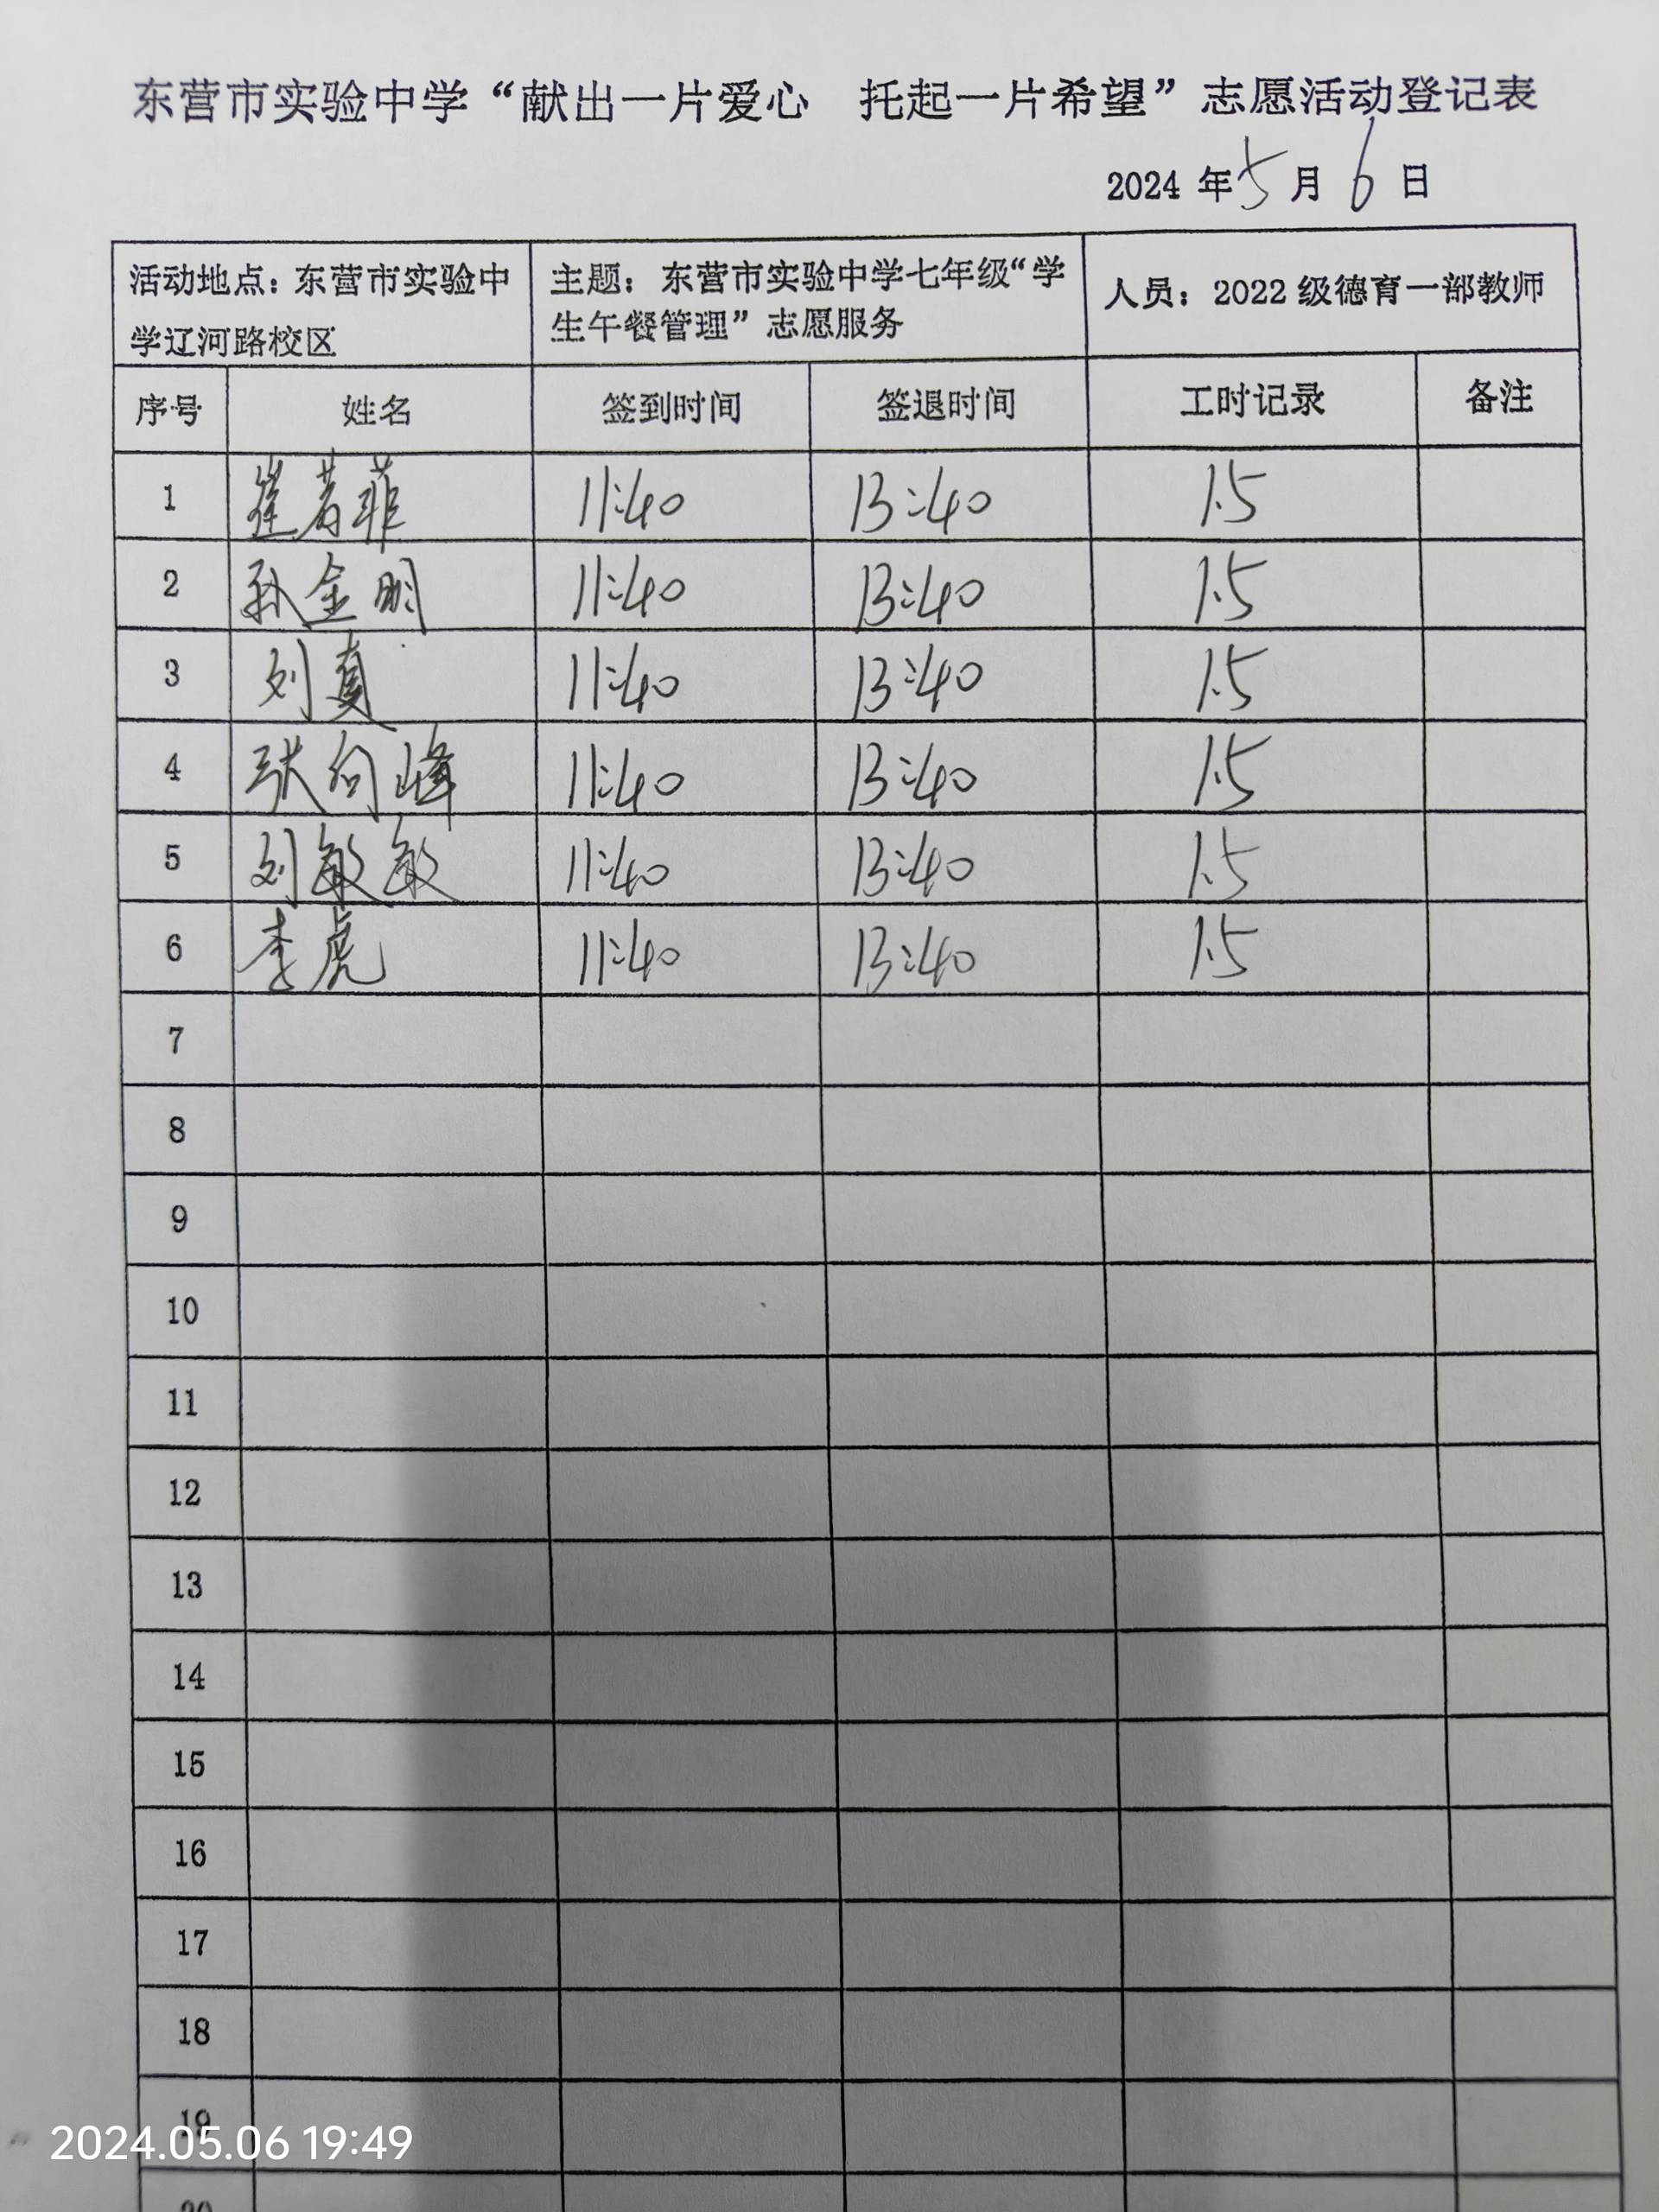 东营市实验中学“献出一片爱心 托起一片希望”志愿活动登记表
2024 年 5 月 6 日
活动地点：东营市实验中学辽河路校区 主题：东营市实验中学七年级“学生午餐管理”志愿服务 人员：2022 级德育一部教师
序号 姓名 签到时间 签退时间 工时记录 备注
1 崔若菲 11:40 13:40 1.5
2 孙金明 11:40 13:40 1.5
3 刘真 11:40 13:40 1.5
4 张向峰 11:40 13:40 1.5
5 刘敏敏 11:40 13:40 1.5
6 李虎 11:40 13:40 1.5
7
8
9
10
11
12
13
14
15
16
17
18
19
2024.05.06 19:49
20